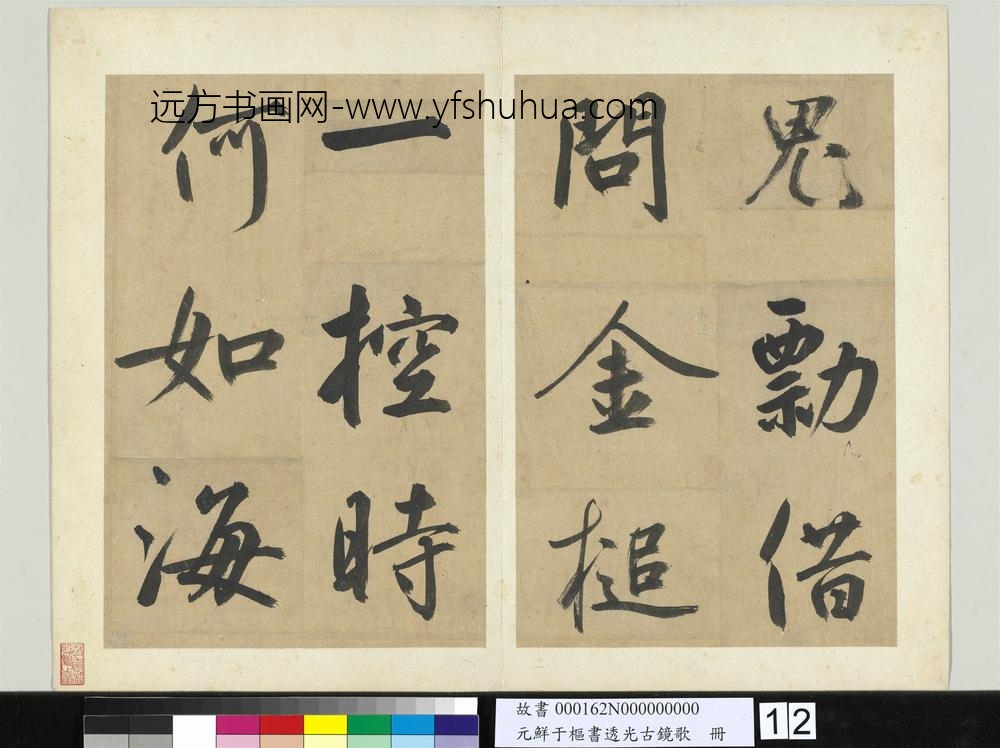 远方书画网-www.yfshuhua.com
鬼勡借
問金槌
一控時
何如海
故書 000162N000000000
元鮮于樞書透光古鏡歌 冊
12